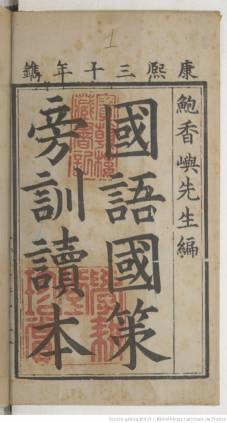 1
康熙三十年鐫
鮑香嶼先生編
國語國策
旁訓讀本
Source gallica.bnf.fr / Bibliothèque nationale de France